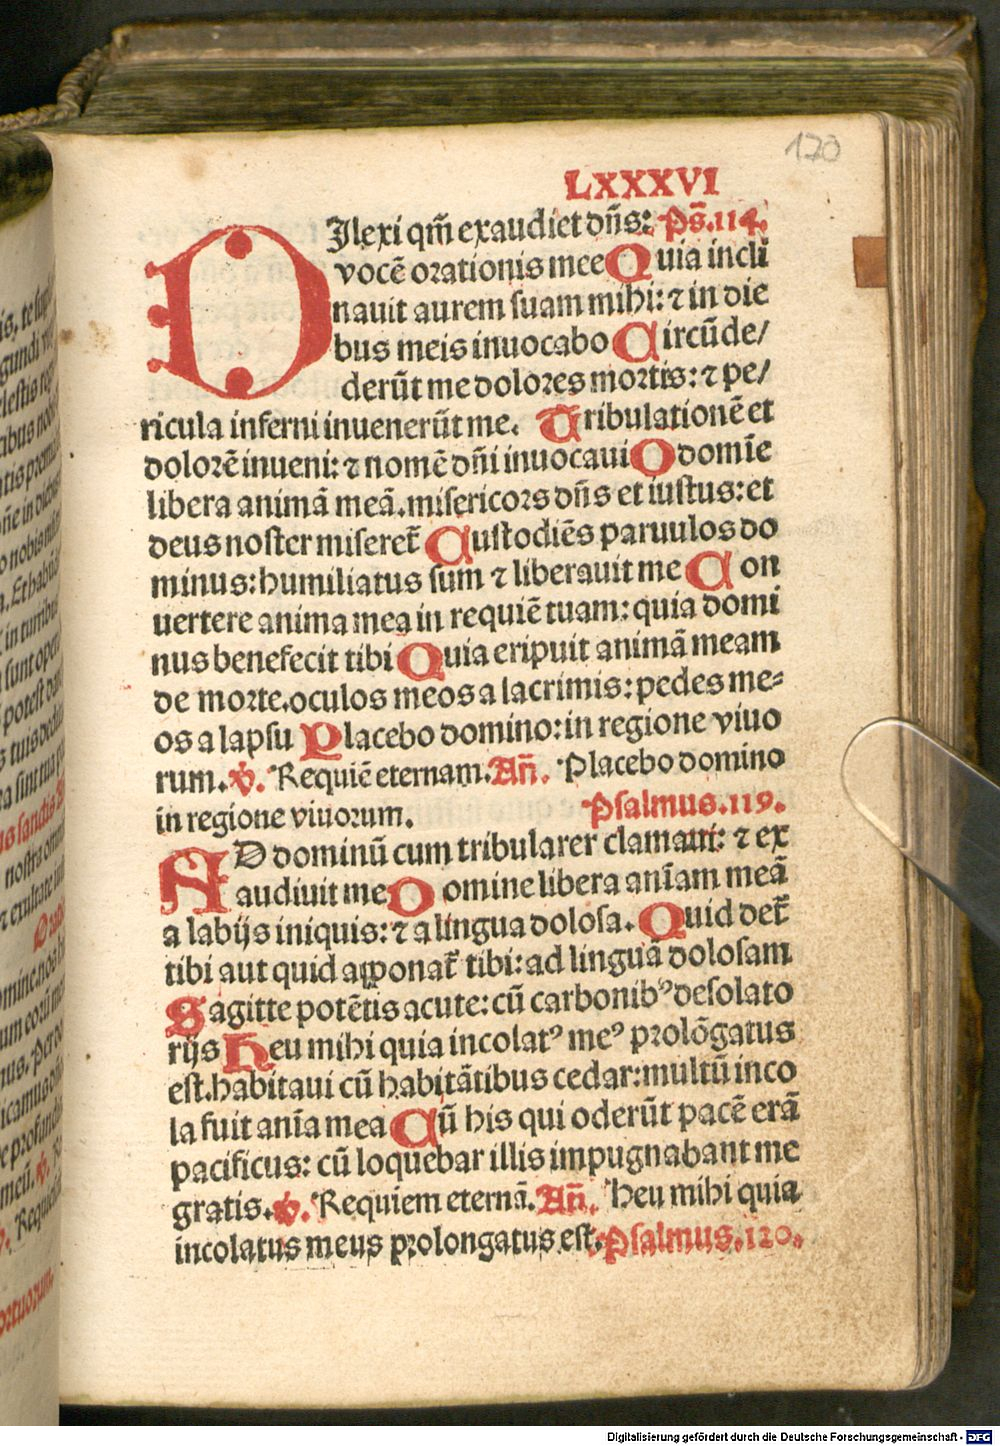 170
LXXXVI
DIlexi qm̃ exaudiet dñs: Ps̃.114.
vocẽ orationis mee Quia incli
nauit aurem suam mihi: ⁊ in die
bus meis inuocabo Circũde/
derũt me dolores mortis: ⁊ pe/
ricula inferni inuenerũt me. Tribulationẽ et
dolorẽ inueni: ⁊ nomẽ dñi inuocaui O domĩe
libera animã meã. misericors dñs et iustus: et
deus noster miseret̃ Custodiẽs paruulos do
minus: humiliatus sum ⁊ liberauit me Con
uertere anima mea in requiẽ tuam: quia domi
nus benefecit tibi Quia eripuit animã meam
de morte. oculos meos a lacrimis: pedes me⸗
os a lapsu Placebo domino: in regione viuo
rum. ℣. Requiẽ eternam. Añ. Placebo domino
in regione viuorum. Psalmus.119.
AD dominũ cum tribularer clamaui: ⁊ ex
audiuit me Domine libera anĩam meã
a labijs iniquis: ⁊ a lingua dolosa. Quid det̃
tibi aut quid apponat̃ tibi: ad linguã dolosam
Sagitte potẽtis acute: cũ carbonibꝰ desolato
rijs Heu mihi quia incolatꝰ meꝰ prolõgatus
est. habitaui cũ habitãtibus cedar: multũ inco
la fuit anĩa mea Cũ his qui oderũt pacẽ erã
pacificus: cũ loquebar illis impugnabant me
gratis. ℣. Requiem eternã. Añ. Heu mihi quia
incolatus meus prolongatus est. Psalmus.120.
Digitalisierung gefördert durch die Deutsche Forschungsgemeinschaft - DFG